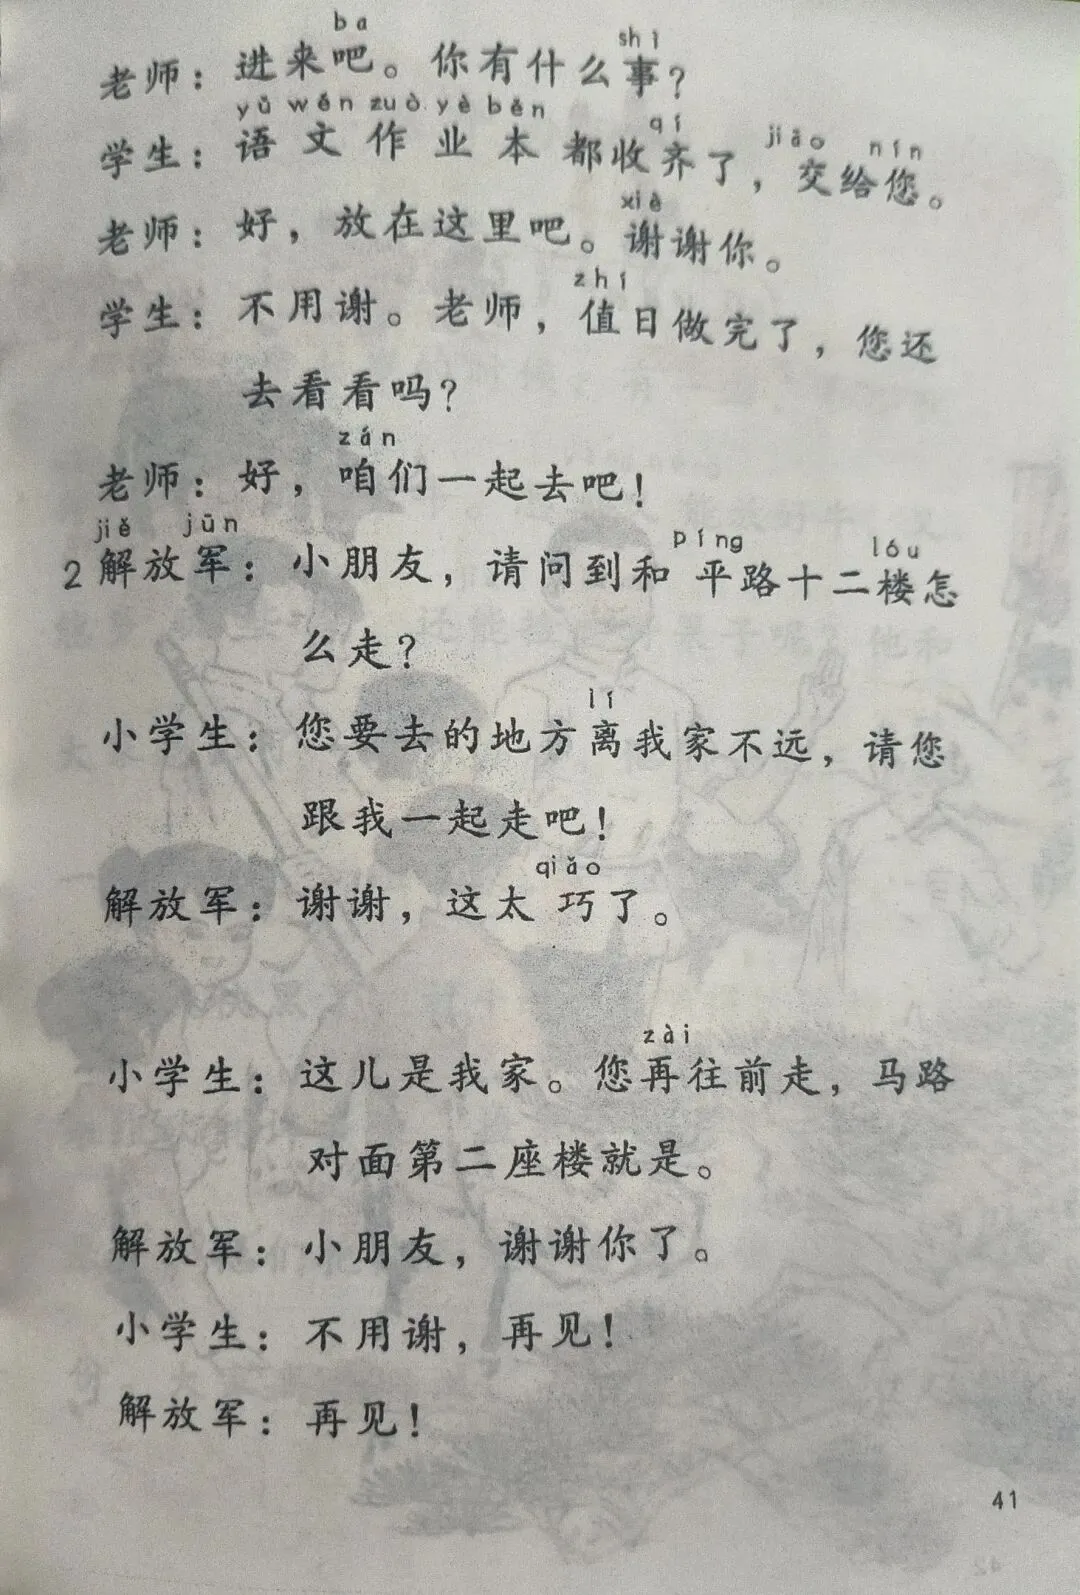 ba shì
老师：进来吧。你有什么事？
yǔ wén zuò yè běn qí jiāo nín
学生：语文作业本都收齐了，交给您。
xiè
老师：好，放在这里吧。谢谢你。
zhí
学生：不用谢。老师，值日做完了，您还
去看看吗？
zán
老师：好，咱们一起去吧！
jiě jūn píng lóu
2 解放军：小朋友，请问到和平路十二楼怎
么走？
lí
小学生：您要去的地方离我家不远，请您
跟我一起走吧！
qiǎo
解放军：谢谢，这太巧了。
zài
小学生：这儿是我家。您再往前走，马路
对面第二座楼就是。
解放军：小朋友，谢谢你了。
小学生：不用谢，再见！
解放军：再见！
41